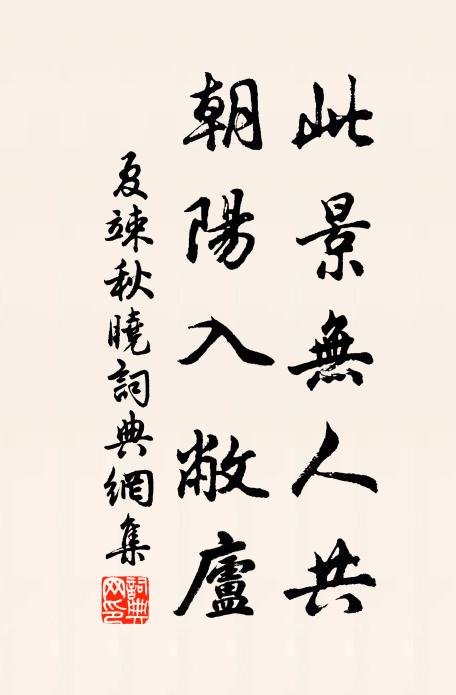 此景無人共
朝陽入敝廬
夏竦秋曉詞典網集
詞典網印